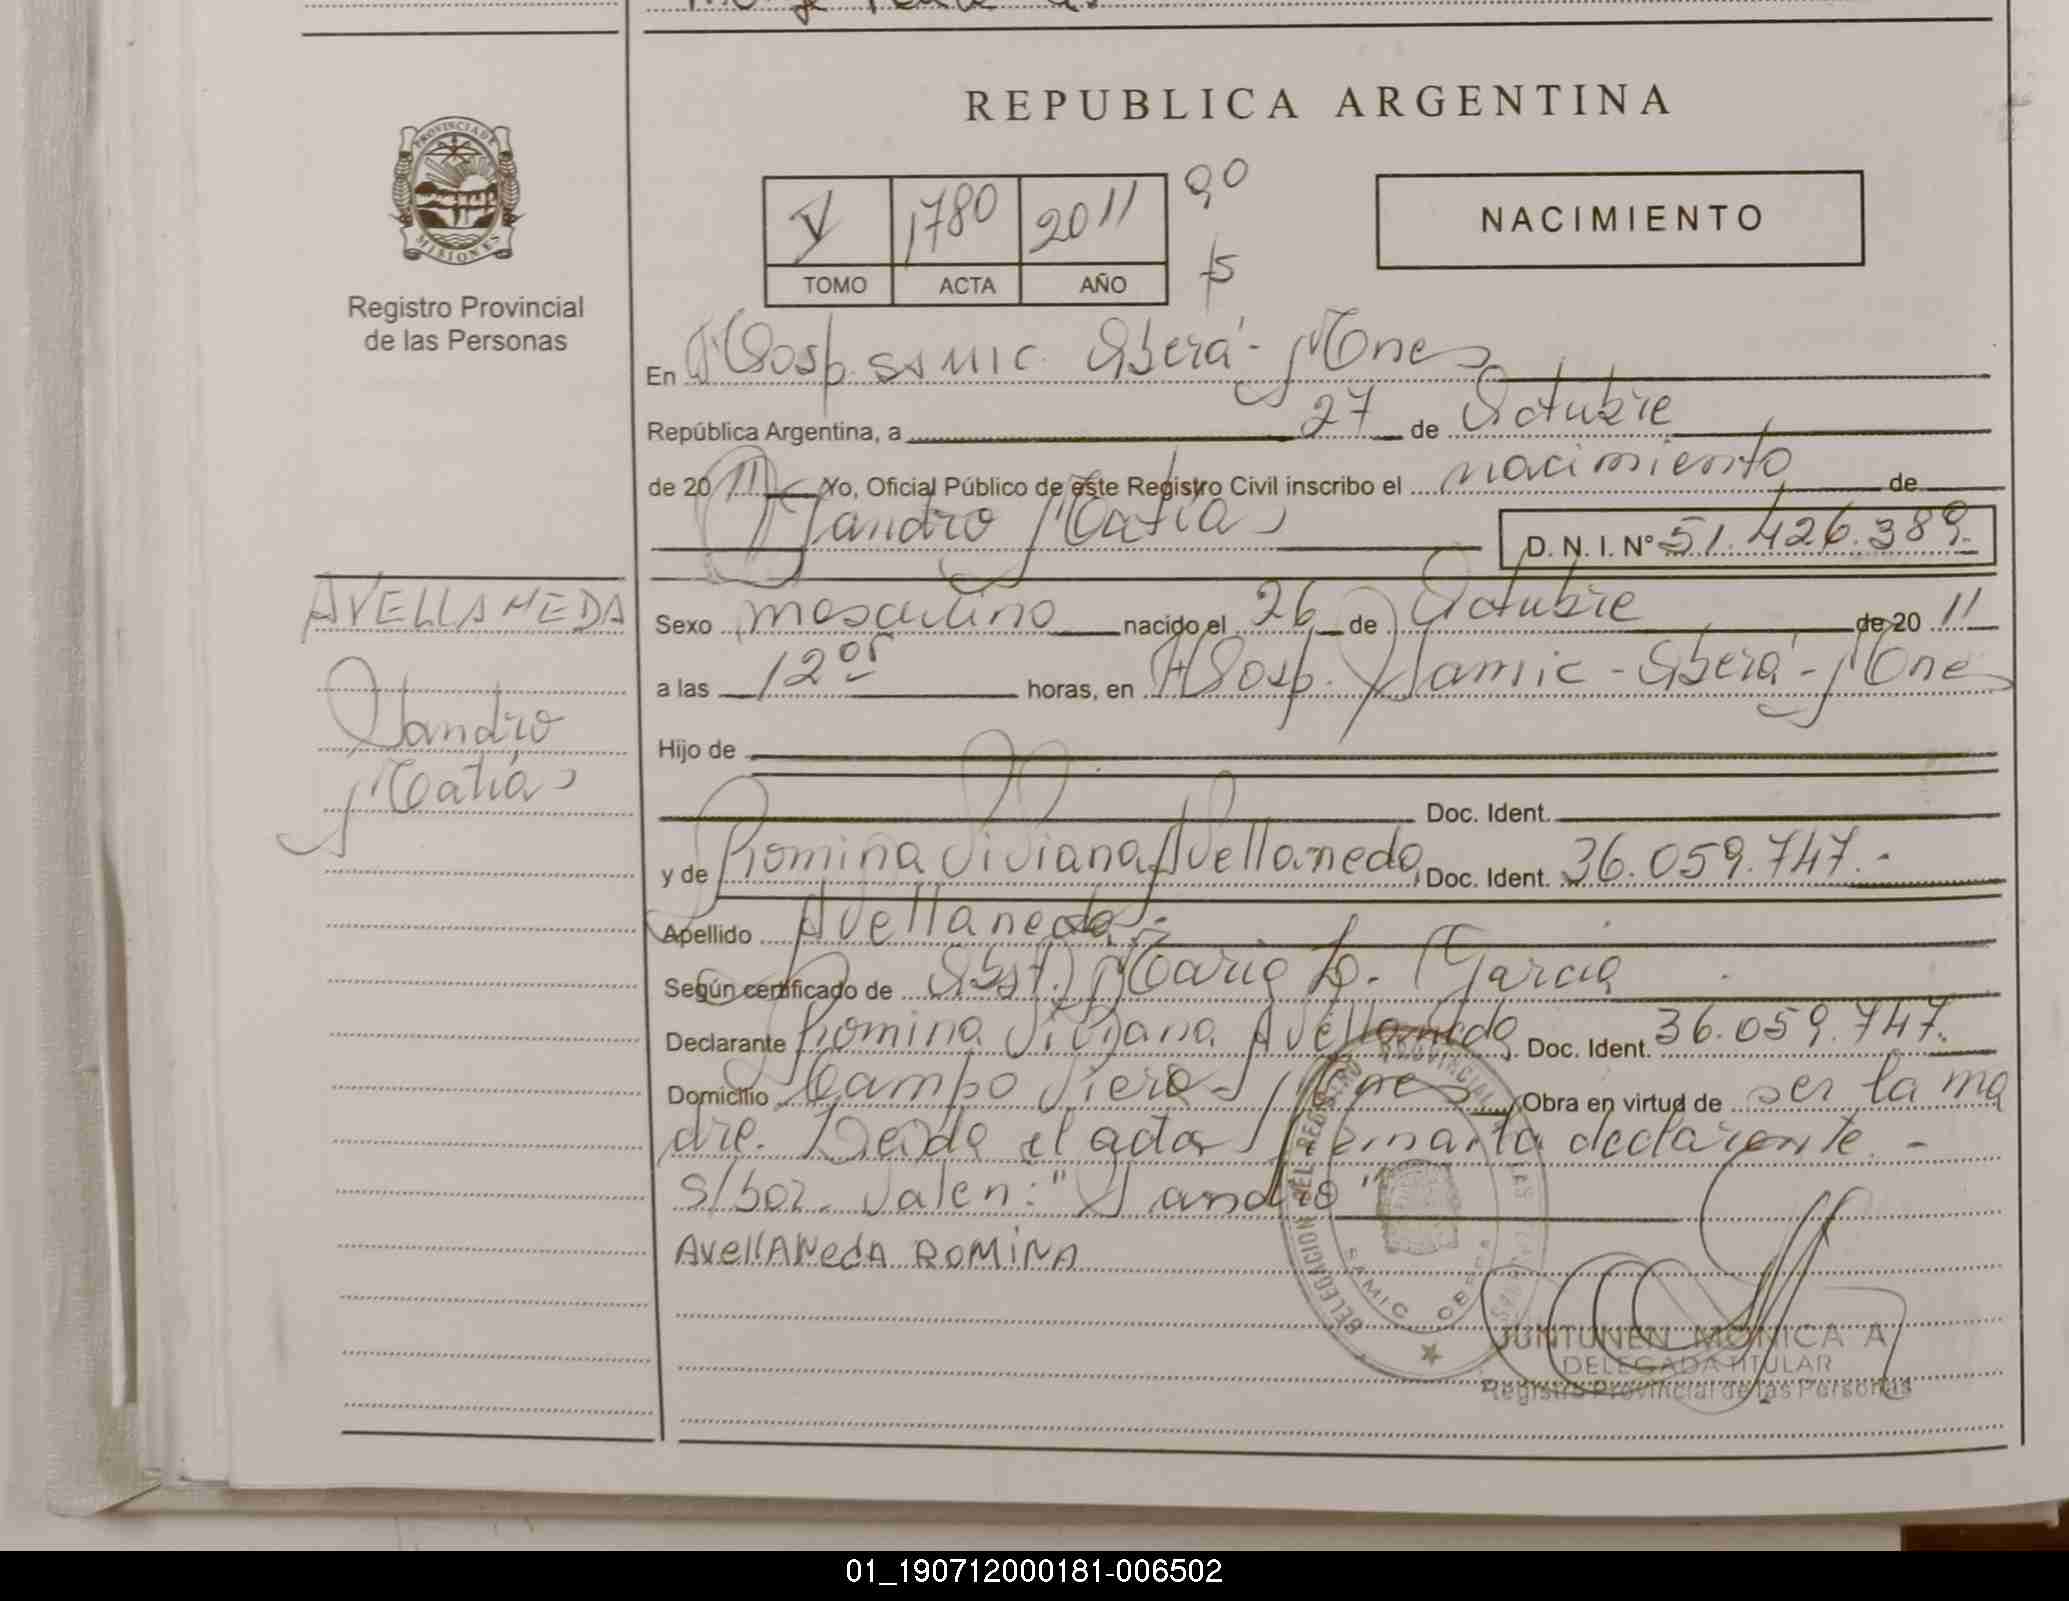 REPUBLICA ARGENTINA
PROVINCIA DE
MISIONES
Registro Provincial
de las Personas
V 1780 2011
TOMO ACTA AÑO
90
15
NACIMIENTO
En Hosp. Samic. Oberá - Mnes
República Argentina, a 27 de Octubre
de 2011 Yo, Oficial Público de este Registro Civil inscribo el nacimiento de
Sandro Matías
D. N. I. N° 51.426.389.-
AVELLANEDA
Sandro
Matías
Sexo masculino nacido el 26 de Octubre de 2011
a las 12 05 horas, en Hosp. Samic - Oberá - Mnes
Hijo de
Doc. Ident.
y de Romina Viviana Avellaneda Doc. Ident. 36.059.747.-
Apellido Avellaneda.-
Según certificado de Obst. Maria L. Garcia
Declarante Romina Viviana Avellaneda Doc. Ident. 36.059.747.
Domicilio Campo Viera - Mnes Obra en virtud de ser la ma
dre. Leida el acta firmarla declarante. -
s/bor. Valen: "Sandro"
AvellANedA ROMiNA
DELEGACION DEL REGISTRO PROVINCIAL DE LAS PERSONAS
SAMIC OBERA
JUNTUNEN MONICA A
DELEGADA TITULAR
Registro Provincial de las Personas
01_190712000181-006502